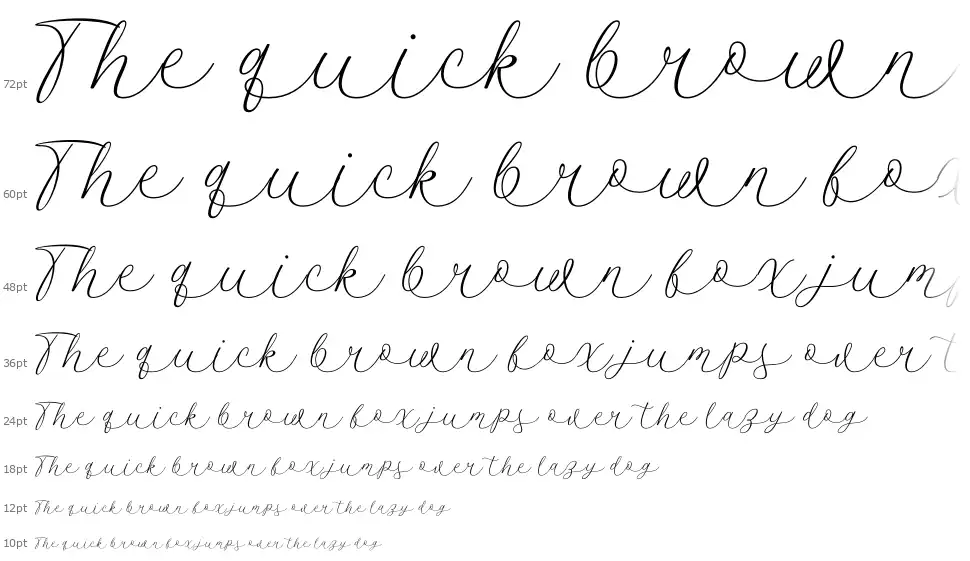 72pt The quick brown
60pt The quick brown fo
48pt The quick brown fox jum
36pt The quick brown fox jumps over t
24pt The quick brown fox jumps over the lazy dog
18pt The quick brown fox jumps over the lazy dog
12pt The quick brown fox jumps over the lazy dog
10pt The quick brown fox jumps over the lazy dog